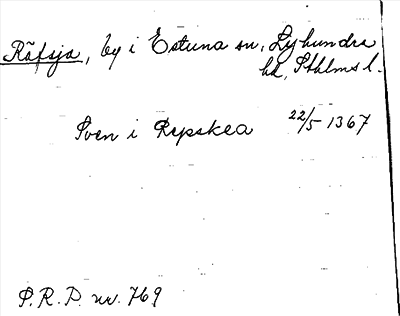 Räfsja, by i Estuna sn, Lyhundra
hd, Sthlms l.
Sven i Repskea 22/5 1367
P.R.P. nr. 769